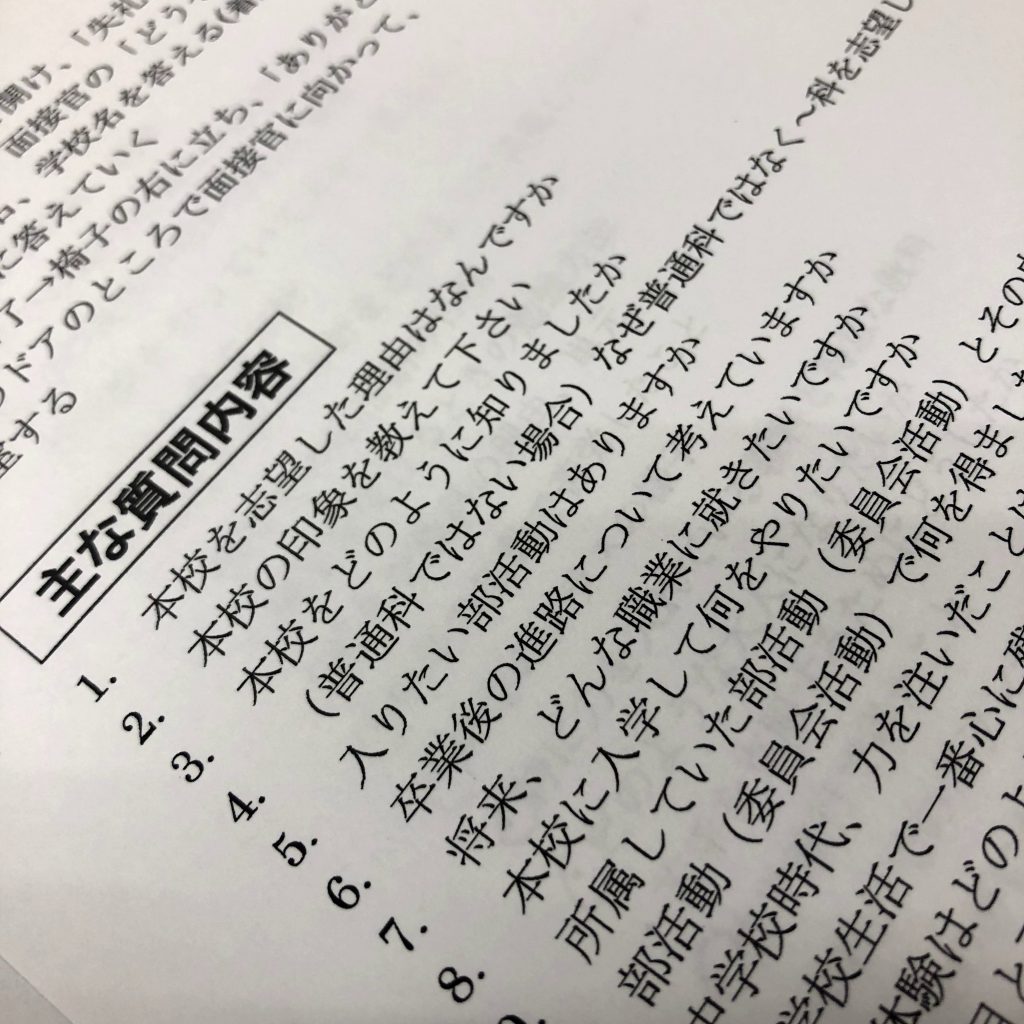 開け、「失礼
面接官の「どう
学校名を答える(着
に答えていく
了→椅子の右に立ち、「ありがと
のドアのところで面接官に向かって、
室する
主な質問内容
1. 本校を志望した理由はなんですか
2. 本校の印象を教えて下さい
3. 本校をどのように知りましたか
4. (普通科ではない場合) なぜ普通科ではなく～科を志望し
5. 入りたい部活動はありますか
6. 卒業後の進路について考えていますか
7. 将来、どんな職業に就きたいですか
8. 本校に入学して何をやりたいですか
所属していた部活動 (委員会活動) とその
部活動 (委員会活動) で何を得まし
中学校時代、力を注いだこと
学校生活で一番心に残
体験はどのよ